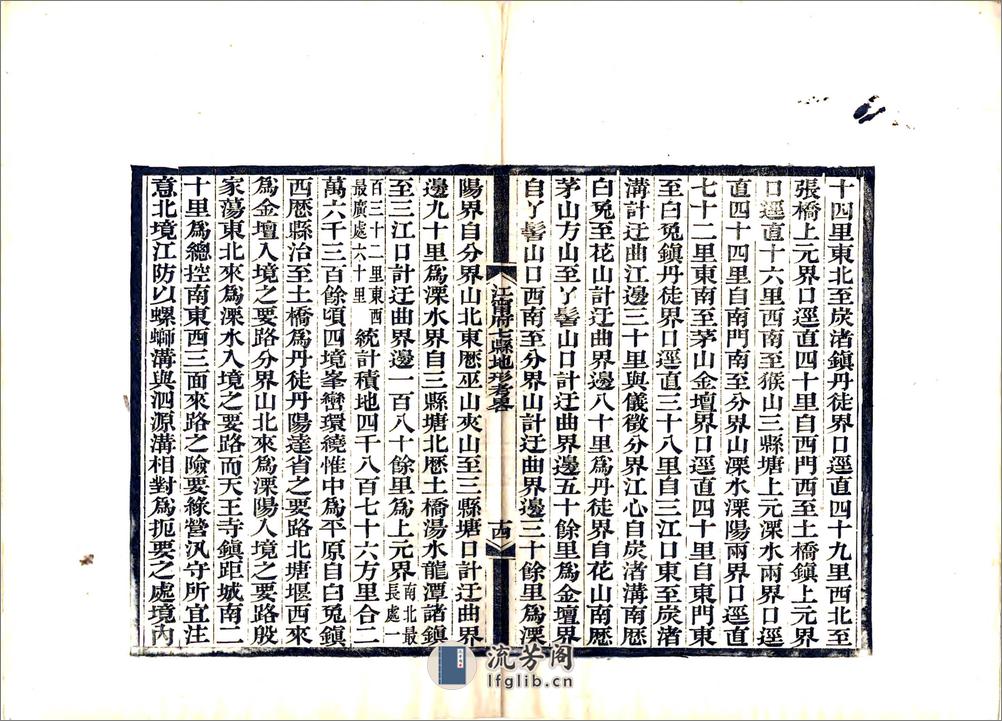 十四里東北至炭渚鎮丹徒界口逕直四十九里西北至
張橋上元界口逕直四十里自西門西至土橋鎮上元界
口逕直十六里西南至猴山三縣塘上元溧水兩界口逕
直四十四里自南門南至分界山溧水溧陽兩界口逕直
七十二里東南至茅山金壇界口逕直四十里自東門東
至白兎鎮丹徒界口逕直三十八里自三江口東至炭渚
溝計迂曲江邊三十里與儀徵分界江心自炭渚溝南歷
白兎至花山計迂曲界邊八十里爲丹徒界自花山南歷
茅山方山至丫髻山口計迂曲界邊五十餘里爲金壇界
自丫髻山口西南至分界山計迂曲界邊三十餘里爲溧
江甯府七縣地形考畧
十四
陽界自分界山北東歷巫山夾山至三縣塘口計迂曲界
邊九十里爲溧水界自三縣塘北歷土橋湯水龍潭諸鎮
至三江口計迂曲界邊一百八十餘里爲上元界南北最長處一
百三十二里東西最廣處六十里統計積地四千八百七十六方里合二
萬六千三百餘頃四境峯巒環繞惟中爲平原自白兎鎮
西歷縣治至土橋爲丹徒丹陽達省之要路北塘堰西來
爲金壇入境之要路分界山北來爲溧陽入境之要路般
家蕩東北來爲溧水入境之要路而天王寺鎮距城南二
十里爲總控南東西三面來路之險要綠營汛守所宜注
意北境江防以螺螄溝與泗源溝相對爲扼要之處境內
流芳阁
lfglib.cn